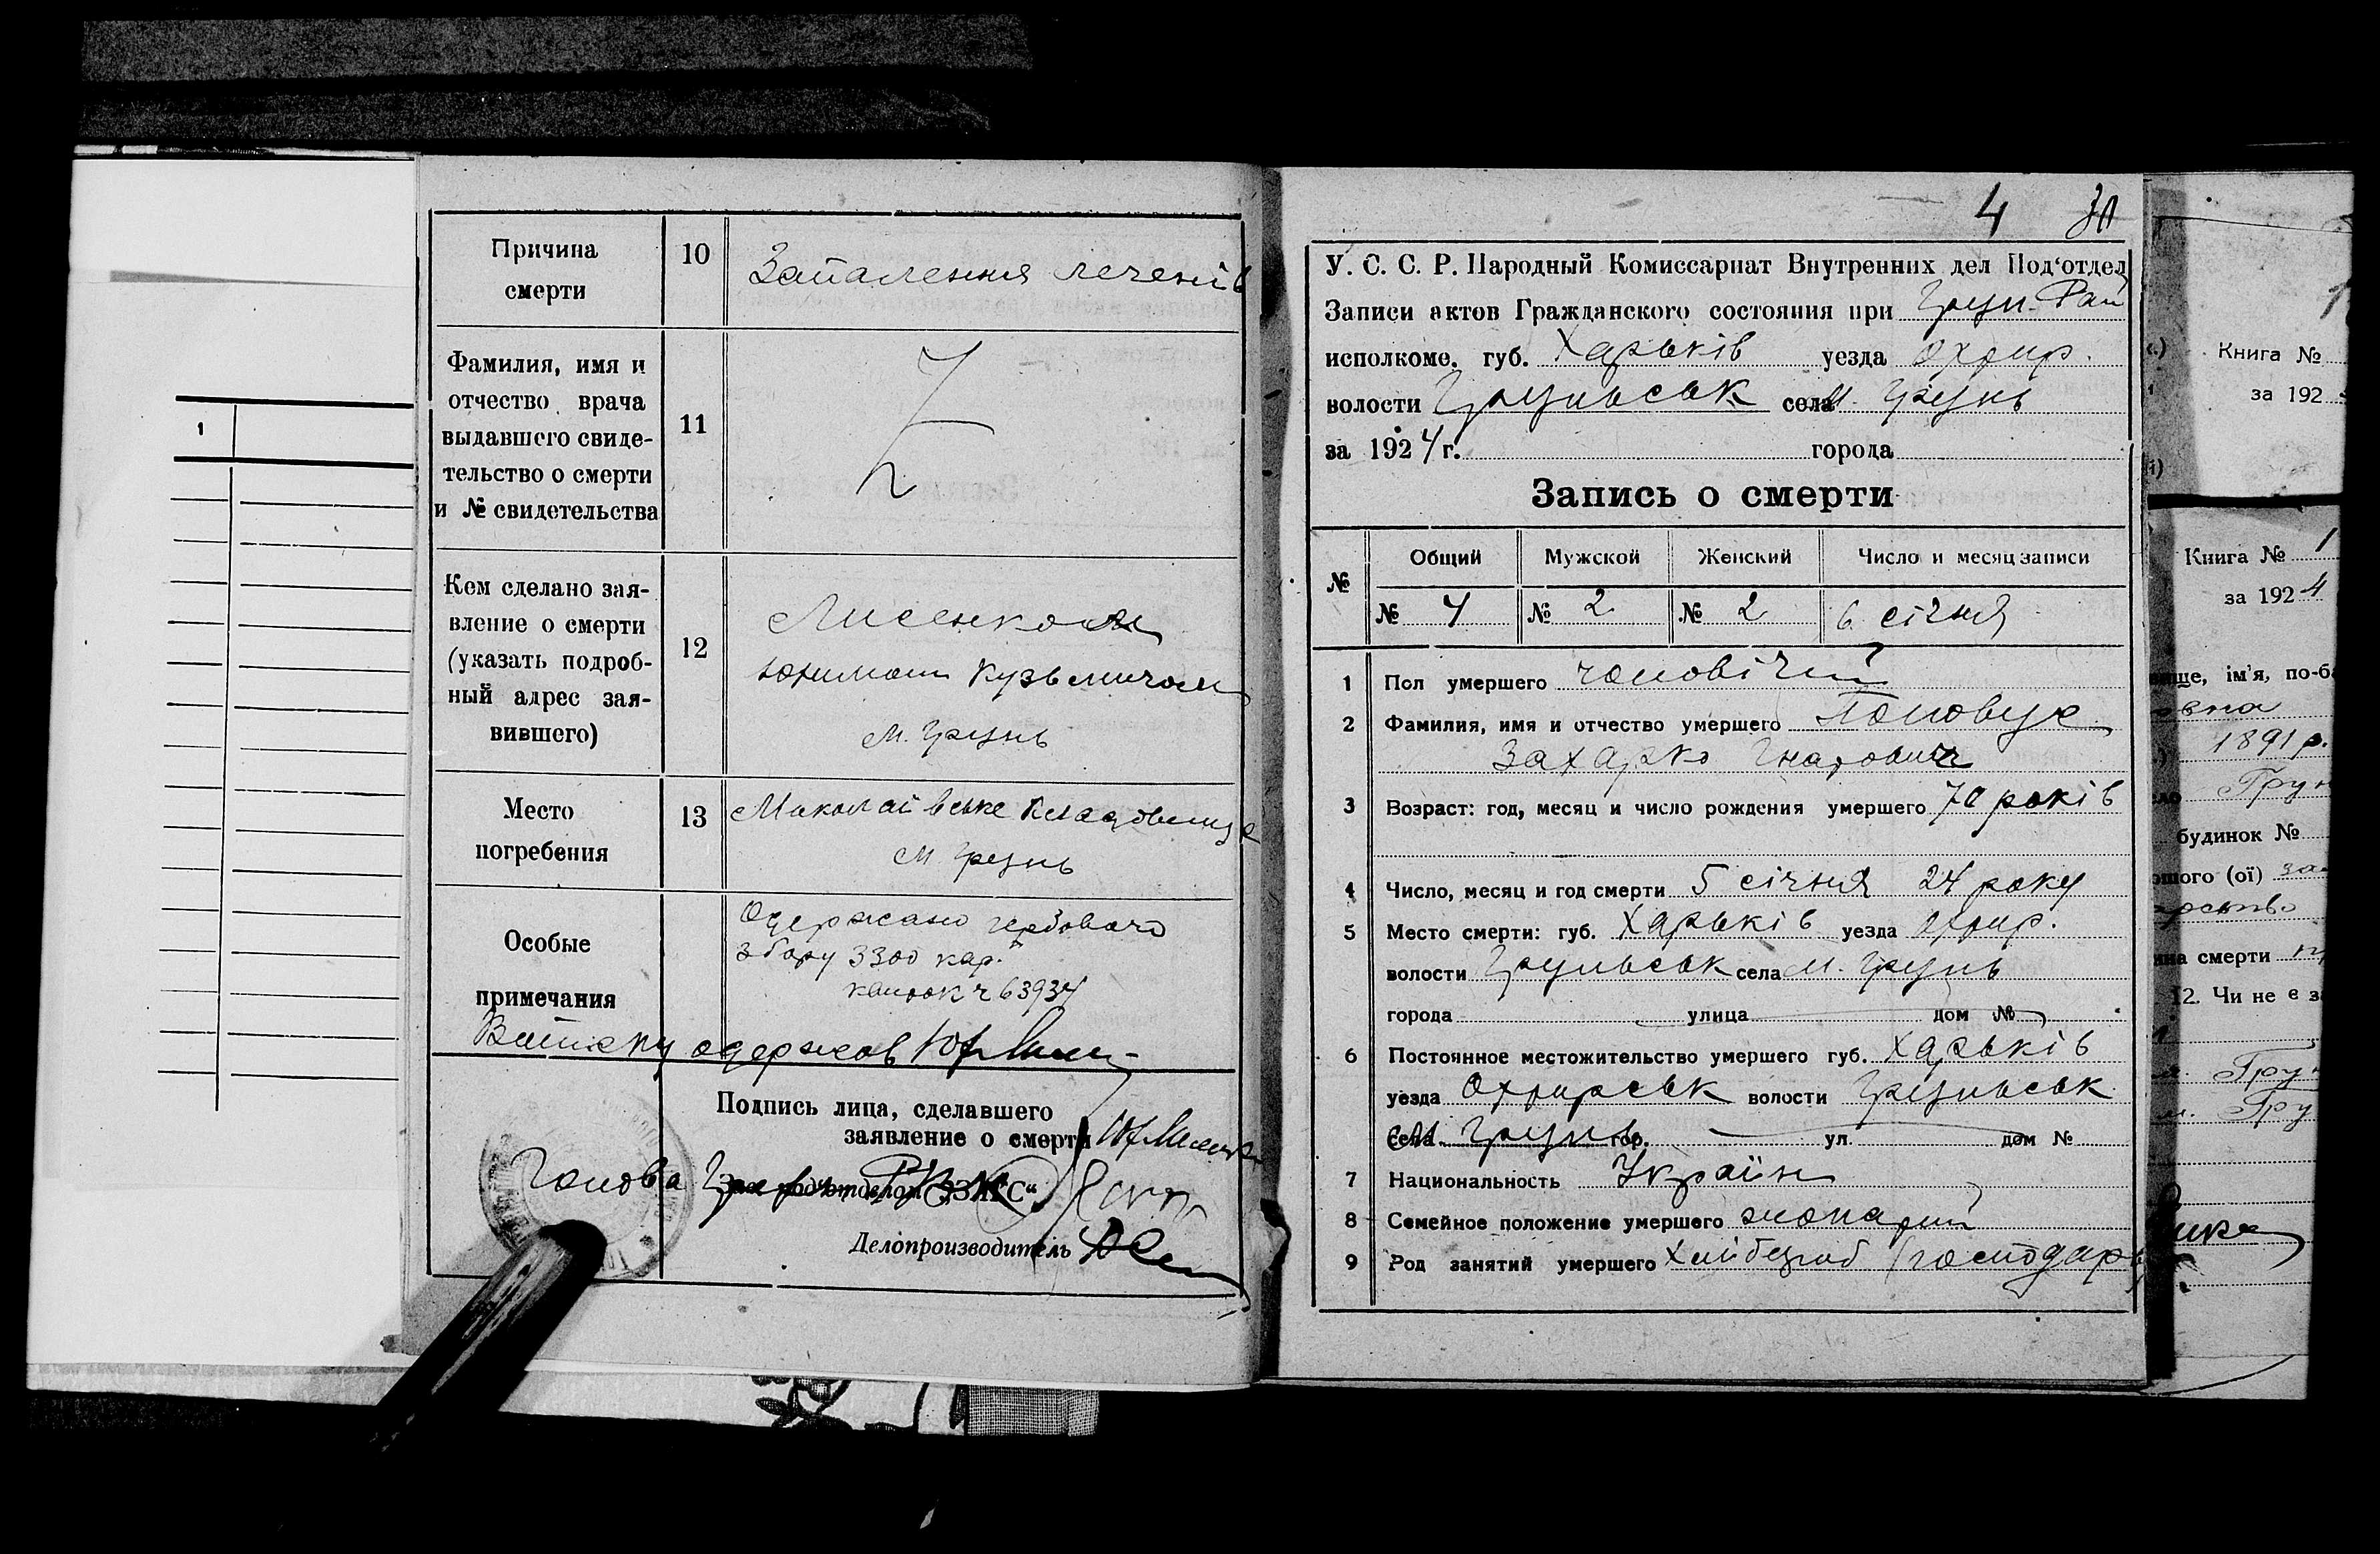 1
Причина
смерти
10
Запалення печенів
Фамилия, имя и
отчество врача
выдавшего свиде-
тельство о смерти
и № свидетельства
11
Кем сделано зая-
вление о смерти
(указать подроб-
ный адрес зая-
вившего)
12
Лисенком
Юхимом Кузьмичом
м. Грунь
Место
погребения
13
Миколаївське Кладовище
м. Грунь
Особые
примечания
Одержано гербового
збору 3300 кар.
квиток ч 63934
Виписку одержав
Подпись лица, сделавшего
заявление о смерти
Голова
Зав. подотделом „ЗАГС“
Делопроизводитель
4 30
У. С. С. Р. Народный Комиссариат Внутренних дел Под'отдел
Записи актов Гражданского состояния при Грун. Рай
исполкоме, губ. Харьків уезда Охтир.
волости Грунськ села м. Грунь
за 1924 г. города
Запись о смерти
№ Общий Мужской Женский Число и месяц записи
№ 4 № 2 № 2 6 січня
1 Пол умершего чоловічий
2 Фамилия, имя и отчество умершего
Захарко Гнатович
3 Возраст: год, месяц и число рождения умершего 70 років
4 Число, месяц и год смерти 5 січня 24 року
5 Место смерти: губ. Харьків уезда Охтир.
волости Грунськ села м. Грунь
города улица дом №
6 Постоянное местожительство умершего губ. Харьків
уезда Охтирськ волости Грунськ
села м. Грунь гор. ул. дом №
7 Национальность Україн
8 Семейное положение умершего жонатий
9 Род занятий умершего Хлібороб (господарь)
Книга №
за 192
Книга № 1
за 1924
ім'я, по-б
1891 р.
Грун
будинок №
шого (ої)
смерти
12. Чи не є з
Грун
Гру